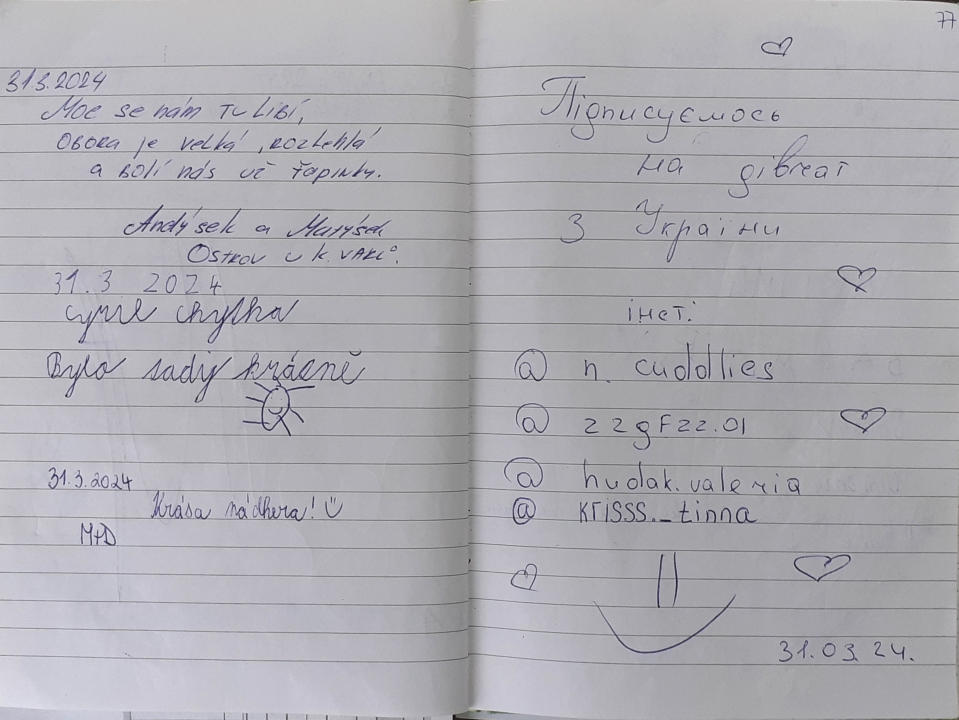 31.3.2024
Moc se nám tu libí,
obora je velká, rozlehlá
a bolí nás už ťapinky.
Andýsek a Matýsek
Ostrov u K. Varů.
31.3 2024
cyril chylka
Bylo sady krásně
31.3.2024
Krása nádhera!
M+D
77
Підписуємось
на дівчат
З України
інст:
@ n. cuddlies
@ zzgFzz.01
@ hudak.valeria
@ krisss._tinna
31.03.24.